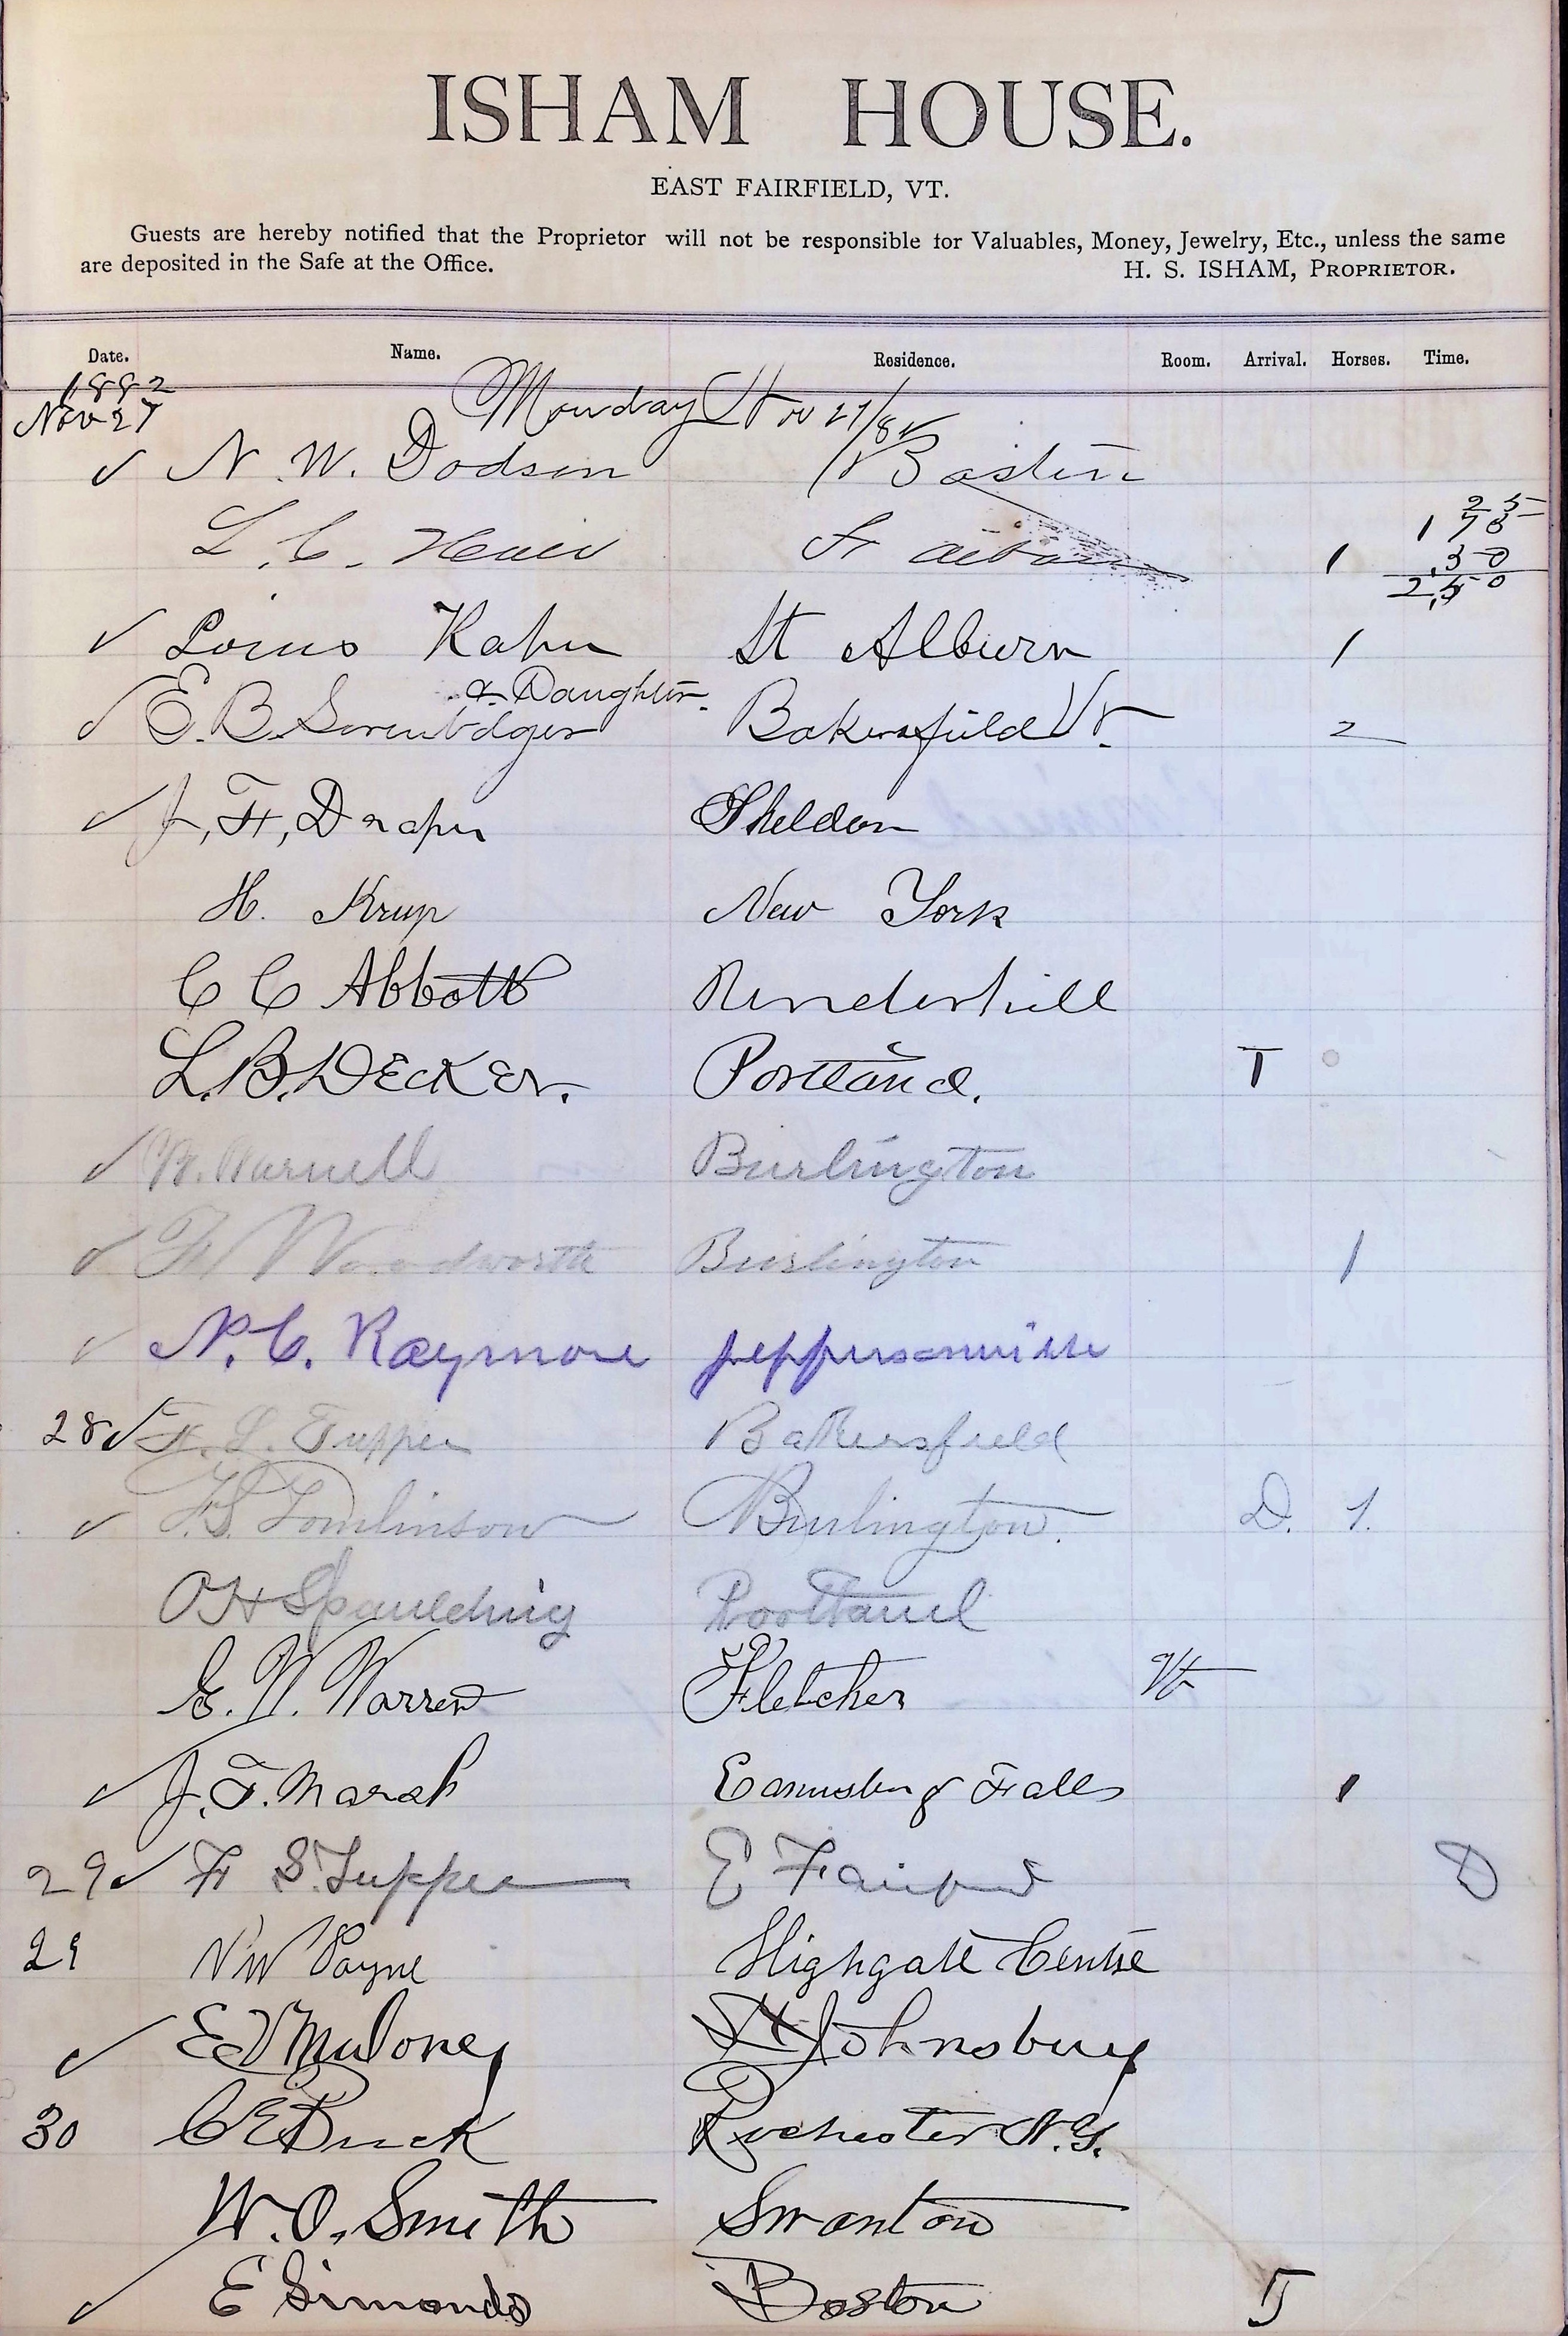 ISHAM HOUSE.
EAST FAIRFIELD, VT.
Guests are hereby notified that the Proprietor will not be responsible for Valuables, Money, Jewelry, Etc., unless the same
are deposited in the Safe at the Office. H. S. ISHAM, PROPRIETOR.
Date. Name. Residence. Room. Arrival. Horses. Time.
1882
Nov 27 Monday Nov 27/82
✓ N. W. Dodson Boston
25
L. C. St 1 1 75
.30
2,50
✓ Louis Kahn St Alburn 1
& Daughter.
✓ E. B. Bakersfield Vt. 2
✓ J, H, Draper Sheldon
H. Krup New York
C C Abbott Underhill
L. B. DECKER. Portland.
T
✓ W. Warnell Burlington
✓ F Woodworth Burlington 1
✓ N. C. Raymore jeffersonville
28 ✓ F. S. Tupper Bakersfield
✓ F. S. Tomlinson Burlington. D. 1.
O H Spaulding Portland
E. W. Warren Fletcher Vt
✓ J. F. Marsh Falls 1
29 ✓ F S. Tupper E D
29 N W Payne Highgate Centre
✓ Ed Maloney St Johnsbury
30 C E Buck Rochester N.Y.
W. O. Smith Swanton
✓ E Simonds Boston T